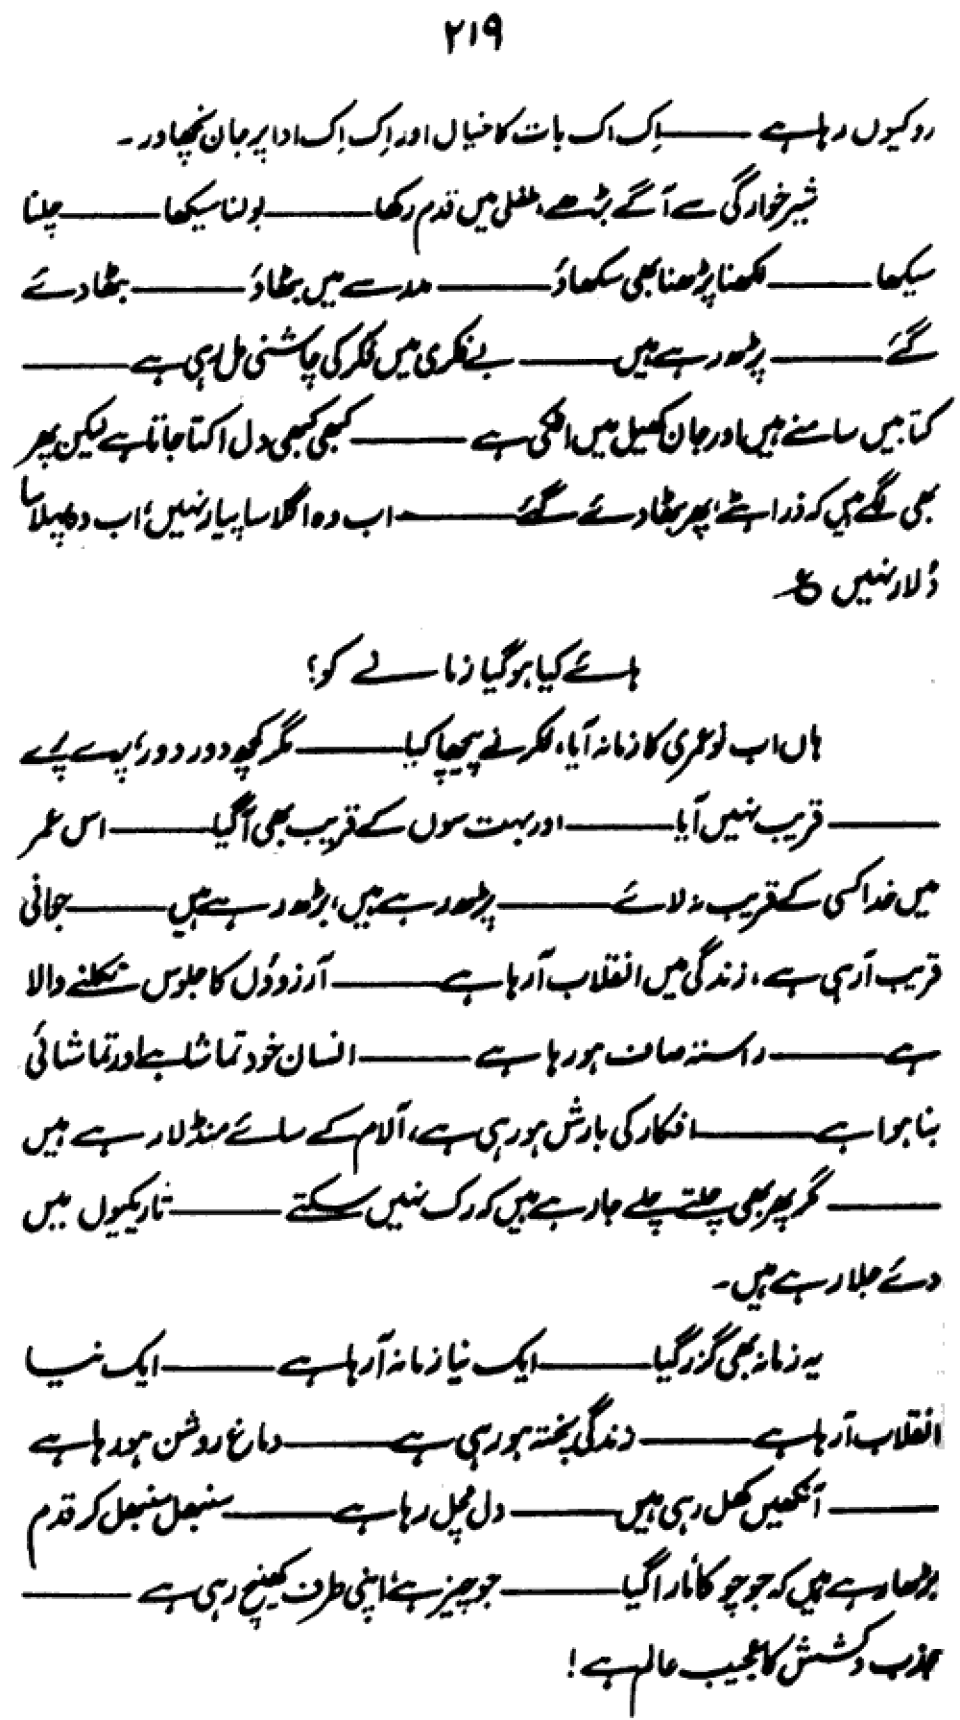 ۲۱۹
رو کیوں رہا ہے ——— اِک اک بات کا خیال اور اِک اِک ادا پر جان نچھاور۔
شیر خوارگی سے آگے بڑھے، طفلی میں قدم رکھا ——— بولنا سیکھا ——— چلنا
سیکھا ——— لکھنا پڑھنا بھی سکھاؤ ——— مدرسے میں بٹھاؤ ——— بٹھا دئے
گئے ——— پڑھ رہے ہیں ——— بے فکری میں فکر کی چاشنی مل رہی ہے ———
کتابیں سامنے ہیں اور جان کھیل میں اٹکی ہے ——— کبھی کبھی دل اکتا جاتا ہے لیکن پھر
بھی لگے ہیں کہ ذرا ہٹے، پھر بٹھا دئے گئے ——— اب وہ اگلا سا پیار نہیں، اب وہ پہلا سا
دُلار نہیں ع
ہائے کیا ہو گیا زمانے کو؟
ہاں اب نو عمری کا زمانہ آیا، فکر نے پیچھا کیا ——— مگر کچھ دور دور، پرے پرے
——— قریب نہیں آیا ——— اور بہت سوں کے قریب بھی آ گیا ——— اس عمر
میں خدا کسی کے قریب نہ لائے ——— پڑھ رہے ہیں، بڑھ رہے ہیں ——— جوانی
قریب آ رہی ہے، زندگی میں انقلاب آ رہا ہے ——— آرزوؤں کا جلوس نکلنے والا
ہے ——— راستہ صاف ہو رہا ہے ——— انسان خود تماشا ہے اور تماشائی
بنا ہوا ہے ——— افکار کی بارش ہو رہی ہے، آلام کے سائے منڈلا رہے ہیں
——— مگر پھر بھی چلتے چلے جا رہے ہیں کہ رک نہیں سکتے ——— تاریکیوں میں
دئے جلا رہے ہیں۔
یہ زمانہ بھی گزر گیا ——— ایک نیا زمانہ آ رہا ہے ——— ایک نیا
انقلاب آ رہا ہے ——— زندگی پختہ ہو رہی ہے ——— دماغ روشن ہو رہا ہے
——— آنکھیں کھل رہی ہیں ——— دل مچل رہا ہے ——— سنبھل سنبھل کر قدم
بڑھا رہے ہیں کہ جو چوکا مارا گیا ——— جو چیز ہے، اپنی طرف کھینچ رہی ہے ———
جذب و کشش کا عجیب عالم ہے!